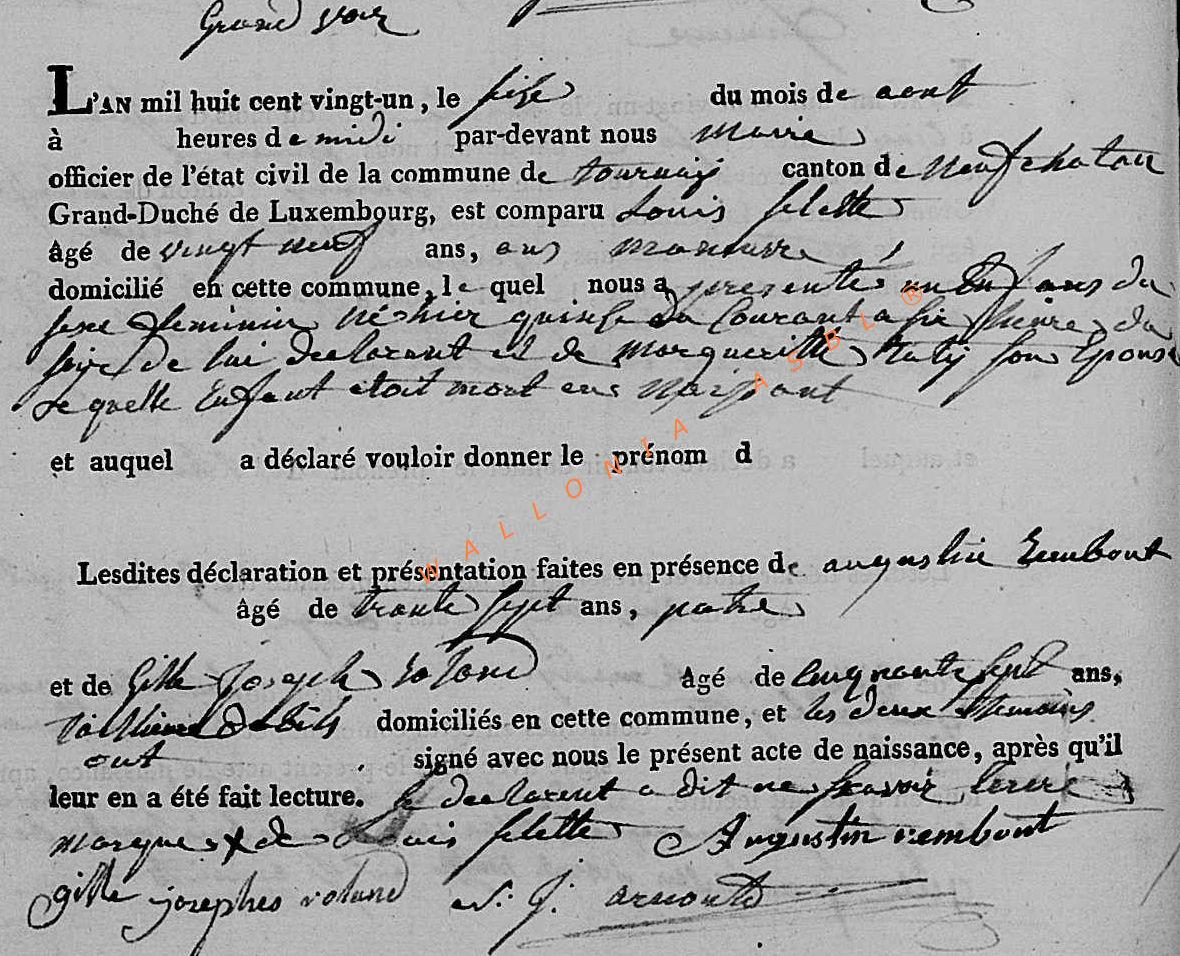 Grand voir
L'AN mil huit cent vingt-un, le seize du mois de aout
à heures de midi par-devant nous maire
officier de l'état civil de la commune de tournay canton de Neufchatau
Grand-Duché de Luxembourg, est comparu Louis
âgé de vingt neuf ans, ans manouvre
domicilié en cette commune, le quel nous a presenté un Enfans du
sexe feminin né hier quinse du Courant a six heures du
soir de lui declarant et de Margueritte son Epouse
le quelle Enfant etoit mort en Naissant
et auquel a déclaré vouloir donner le prénom d
Lesdites déclaration et présentation faites en présence de augustin Rembout
âgé de trente sept ans, patre
et de Gille Joseph Volond âgé de Cinquante sept ans,
domiciliés en cette commune, et les deux temoins
ont signé avec nous le présent acte de naissance, après qu'il
leur en a été fait lecture. le declarent a dit ne scavoir
marque x de Louis Augustin rembout
gille josephes volund N. J. arnould
WALLONIA ASBL ®